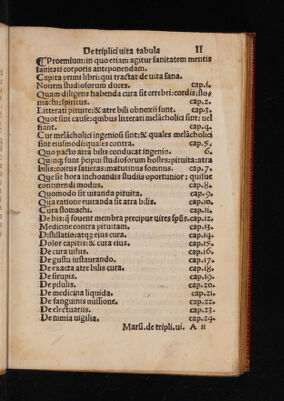 De triplici uita tabula II
Proemium: in quo etiam agitur sanitatem mentis
sanitati corporis anteponendam.
Capita primi libri: qui tractat de uita sana.
Nouem studiosorum duces. cap.i.
Quam diligens habenda cura sit cerebri: cordis: sto
machi: spiritus. cap.2.
Litterati pituite: & atre bili obnoxii sunt. cap.3.
Quot sint cause: quibus litterati melācholici sint: uel
fiant. cap.4.
Cur melācholici ingeniosi sint: & quales melācholici
sint eiusmodi: quales contra. cap.5.
Quo pacto atra bilis conducat ingenio. 6.
Quinq; sunt peipui studiosorum hostes: pituita: atra
bilis: coitus satietas: matutinus somnus. cap.7.
Que sit hora inchoandis studiis oportunior: quisue
continendi modus. cap.8.
Quomodo sit uitanda pituita. cap.9.
Qua ratione euitanda sit atra bilis. cap.10.
Cura stomachi. cap.11.
De his: q̃ fouent membra precipue uires sp̄us. cap.12.
Medicine contra pituitam. cap.13.
Distillatio: atq; eius cura. cap.14.
Dolor capitis: & cura eius. cap.15.
De cura uisus. cap.16.
De gustu instaurando. cap.17.
De exacta atre bilis cura. cap.18.
De sirupis. cap.19.
De pilulis. cap.20.
De medicina liquida. cap.21.
De sanguinis missione. cap.22.
De electuariis. cap.23.
De nimia uigilia. cap.24.
Marsi. de tripli. ui. A ii